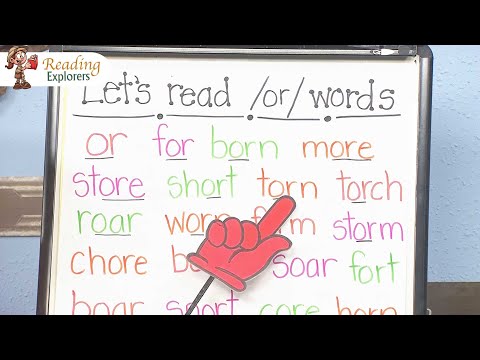 Reading
Explorers
Let's read /or/ words
or for born more
store short torn torch
roar worn storm
chore soar fort
boar sport core born